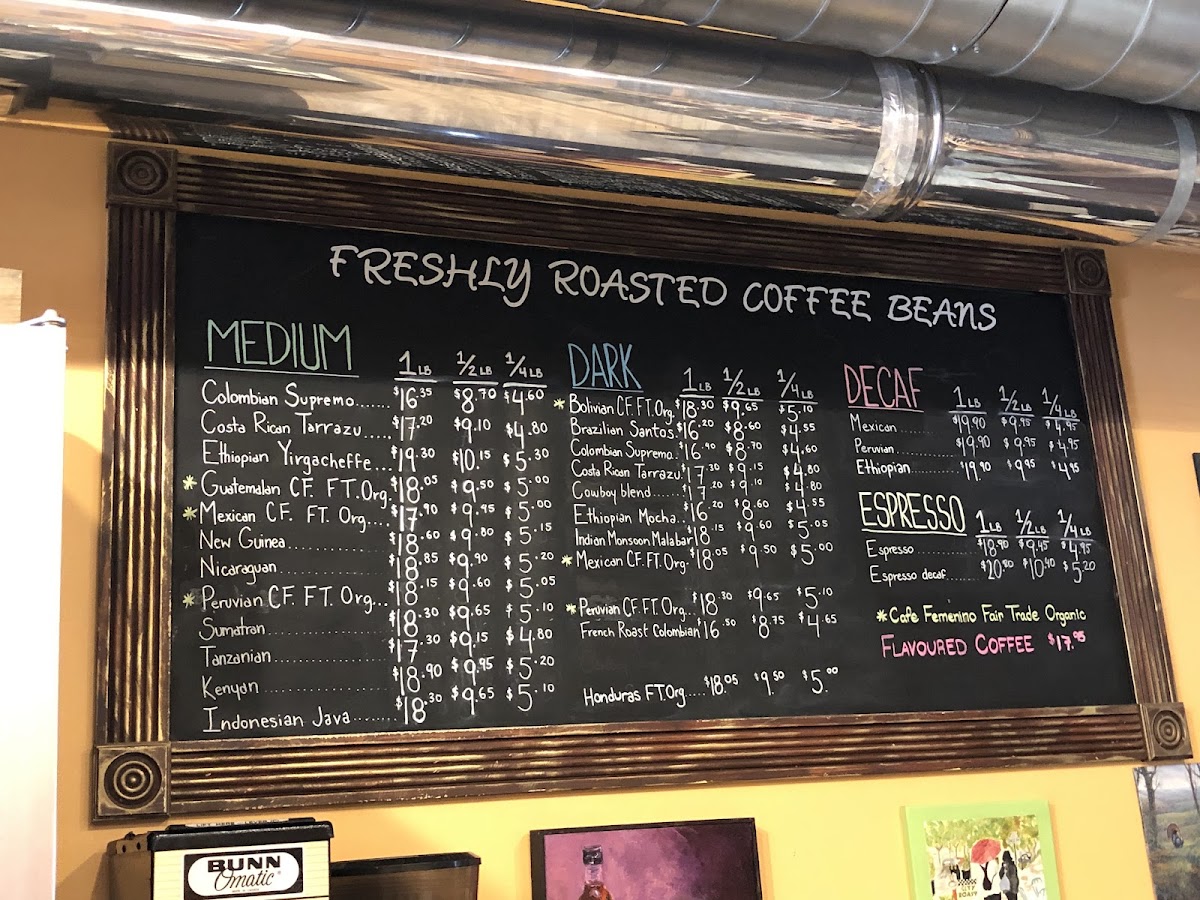 FRESHLY ROASTED COFFEE BEANS
MEDIUM 1 LB 1/2 LB 1/4 LB
Colombian Supremo....... $16.35 $8.70 $4.60
Costa Rican Tarrazu..... $17.20 $9.10 $4.80
Ethiopian Yirgacheffe... $19.30 $10.15 $5.30
* Guatemalan CF. FT.Org. $18.05 $9.50 $5.00
* Mexican CF. FT. Org.... $17.90 $9.95 $5.00
New Guinea.............. $18.60 $9.80 $5.15
Nicaraguan.............. $18.85 $9.90 $5.20
* Peruvian CF. FT. Org... $18.15 $9.60 $5.05
Sumatran ............... $18.30 $9.65 $5.10
Tanzanian .............. $17.30 $9.15 $4.80
Kenyan ................. $18.90 $9.95 $5.20
Indonesian Java........ $18.30 $9.65 $5.10
DARK 1 LB 1/2 LB 1/4 LB
* Bolivian CF. FT. Org. $18.30 $9.65 $5.10
Brazilian Santos. $16.20 $8.60 $4.55
Colombian Supremo.. $16.40 $8.70 $4.60
Costa Rican Tarrazu $17.30 $9.15 $4.80
Cowboy blend...... $17.20 $9.10 $4.80
Ethiopian Mocha.. $16.20 $8.60 $4.55
Indian Monsoon Malabar $18.15 $9.60 $5.05
* Mexican CF. FT. Org. $18.05 $9.50 $5.00
* Peruvian CF. FT. Org... $18.30 $9.65 $5.10
French Roast Colombian $16.50 $8.75 $4.65
Honduras FT.Org.... $18.05 $9.50 $5.00
DECAF 1 LB 1/2 LB 1/4 LB
Mexican ........ $19.90 $9.95 $4.95
Peruvian........ $19.90 $9.95 $4.95
Ethiopian....... $19.90 $9.95 $4.95
ESPRESSO 1 LB 1/2 LB 1/4 LB
Espresso ........... $18.90 $9.45 $4.95
Espresso decaf...... $20.80 $10.40 $5.20
* Cafe Femenino Fair Trade Organic
FLAVOURED COFFEE $17.95
BUNN
Omatic